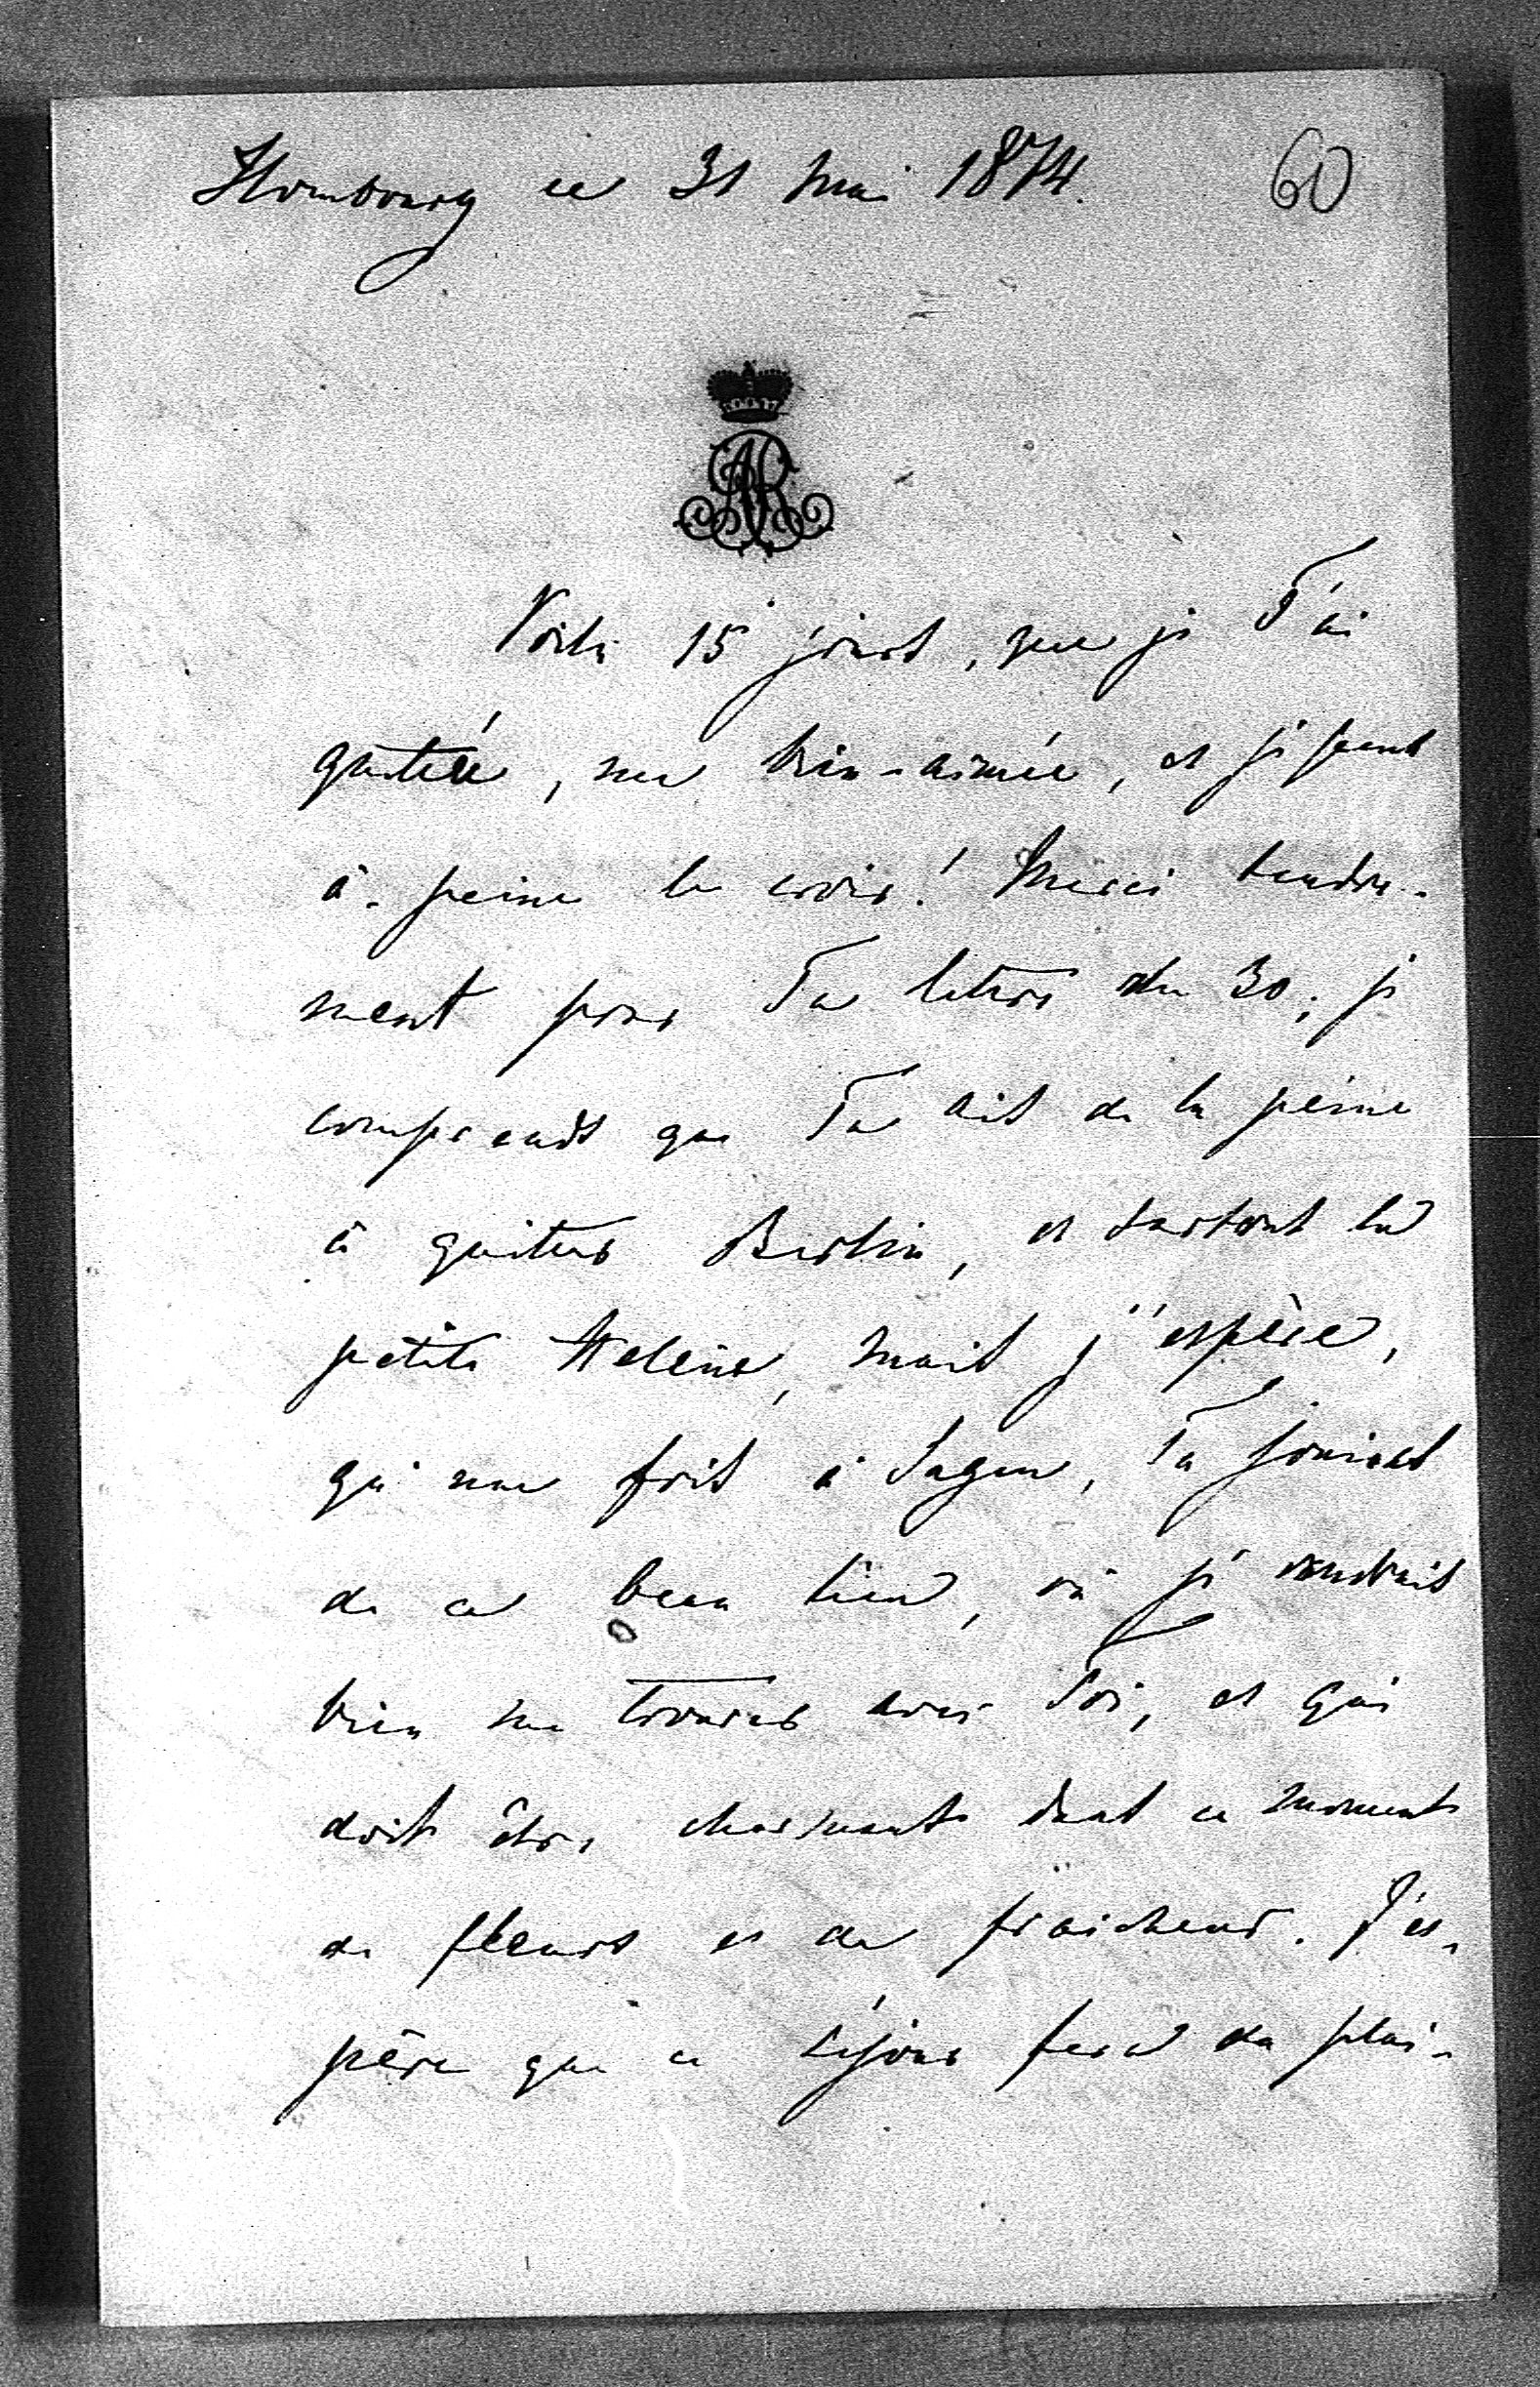 Hombourg ce 31 Mai 1874. 60
AR
Voila 15 jours, que je T'ai
quitée, ma bien-aimée, et je peux
à peine le croir! Merci tendre-
ment pour Ta letre du 30; je
comprends que Tu ais de la peine
à quiter Berlin, et surtout la
petite Helène, mais j'espère,
qu'une fois à Sagan, Tu jouiras
de ce beau lieu, où je voudrais
bien me trouver avec Toi, et qui
doit être charmant dans ce moment
de fleurs et de fraicheur. J'es-
père que ce séjour fera du plai-